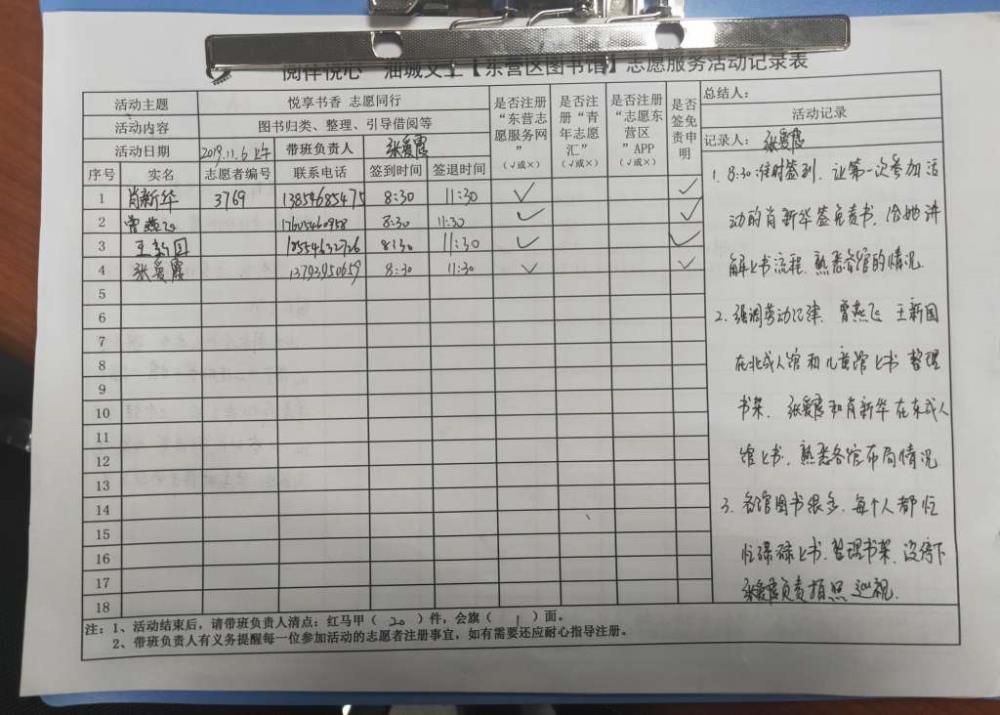 阅伴悦心 油城义工【东营区图书馆】志愿服务活动记录表
活动主题 悦享书香 志愿同行
活动内容 图书归类、整理、引导借阅等
活动日期 2019.11.6上午 带班负责人 张爱霞
是否注册“东营志愿服务网”（√或×） 是否注册“青年志愿汇”（√或×） 是否注册“志愿东营区”APP（√或×） 是否签免责申明
序号 实名 志愿者编号 联系电话 签到时间 签退时间
1 肖新华 3769 13854685475 8:30 11:30 √ √
2 曾燕飞 17605460958 8:30 11:30 √ √
3 王新国 8:30 11:30 √ √
4 张爱霞 13793950659 8:30 11:30 √ √
5
6
7
8
9
10
11
12
13
14
15
16
17
18
总结人：
活动记录
记录人：张爱霞
1. 8:30准时签到，让第一次参加活
动的肖新华签免责书，给她讲
解上书流程，熟悉各馆的情况
2. 强调劳动纪律，曾燕飞 王新国
在北成人馆和儿童馆上书 整理
书架，张爱霞和肖新华在东成人
馆上书，熟悉各馆布局情况
3. 各馆图书很多，每个人都忙
忙碌碌上书，整理书架，没停下
张爱霞负责拍照 巡视.
注：1、活动结束后，请带班负责人清点：红马甲（ 20 ）件，会旗（ 1 ）面。
2、带班负责人有义务提醒每一位参加活动的志愿者注册事宜，如有需要还应耐心指导注册。